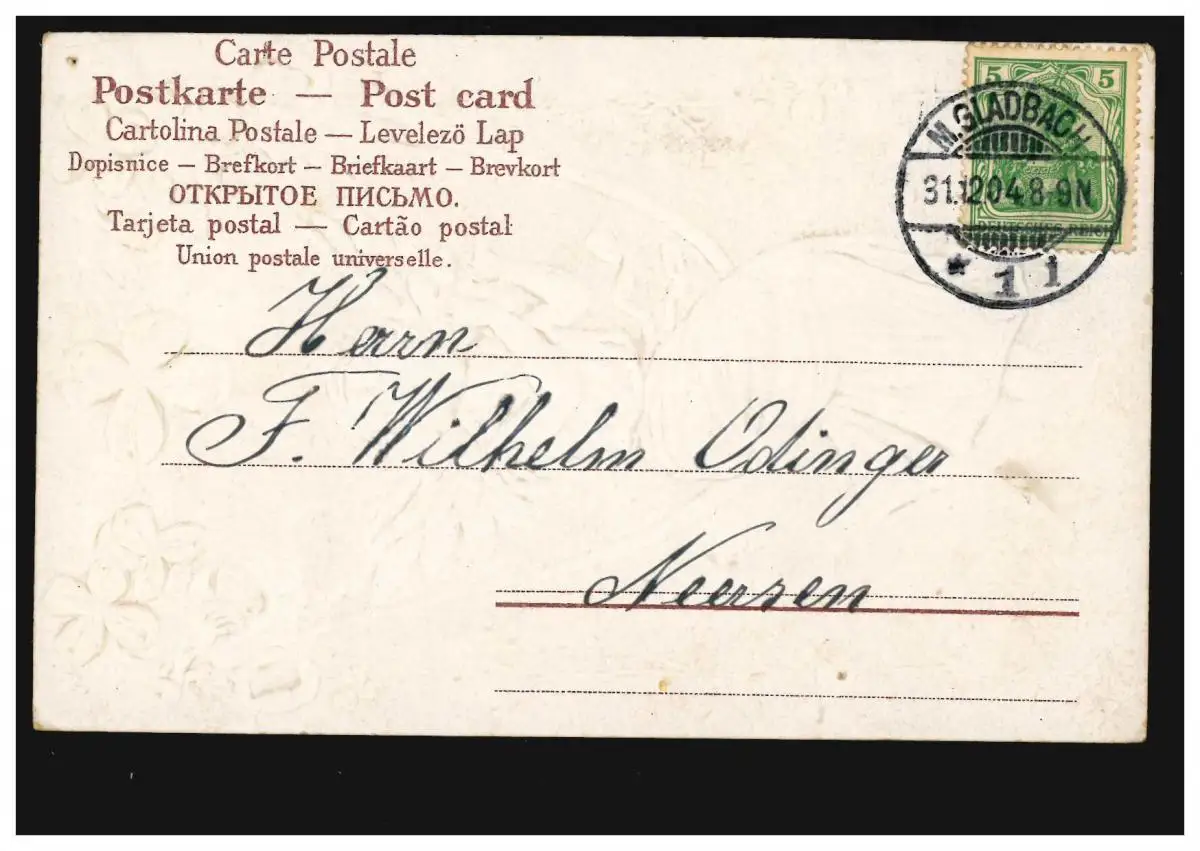 Carte Postale
Postkarte — Post card
Cartolina Postale — Levelezö Lap
Dopisnice — Brefkort — Briefkaart — Brevkort
ОТКРЫТОЕ ПИСЬМО.
Tarjeta postal — Cartão postal
Union postale universelle.
5 5
DEUTSCHES REICH
M. GLADBACH
31.12.04.8-9N
* 1 i
Herrn
F. Wilhelm Odinger
Neersen